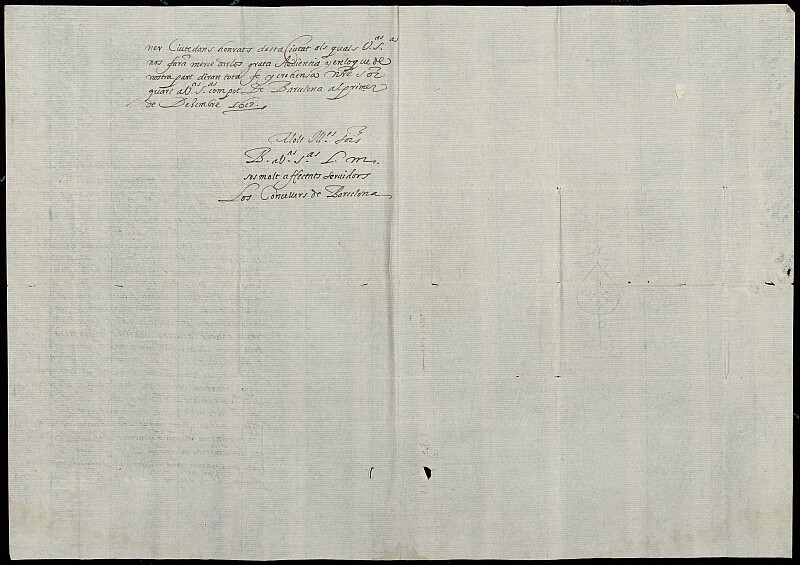 ner Ciutedans honrats desta Ciutat als quals V.ªˢ S.ᵃˢ
nos faran merce darlos grata Audientia y en lo que de
nostra part diran total fe y crehensa nre Sor
guart a V.ªˢ S.ᵃˢ com pot. De Barcelona al primer
de Desembre 1617.
Molt Ill.ᵉˢ Sors
B. a V.ªˢ S.ᵃˢ L. m.
sos molt affectats servidors
Los Concellers de Barcelona